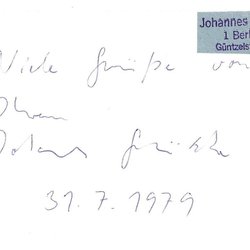 Johannes
1 Berl
Güntzels
Viele Grüße von
Ihrem
Johannes Grützke
31.7.1979